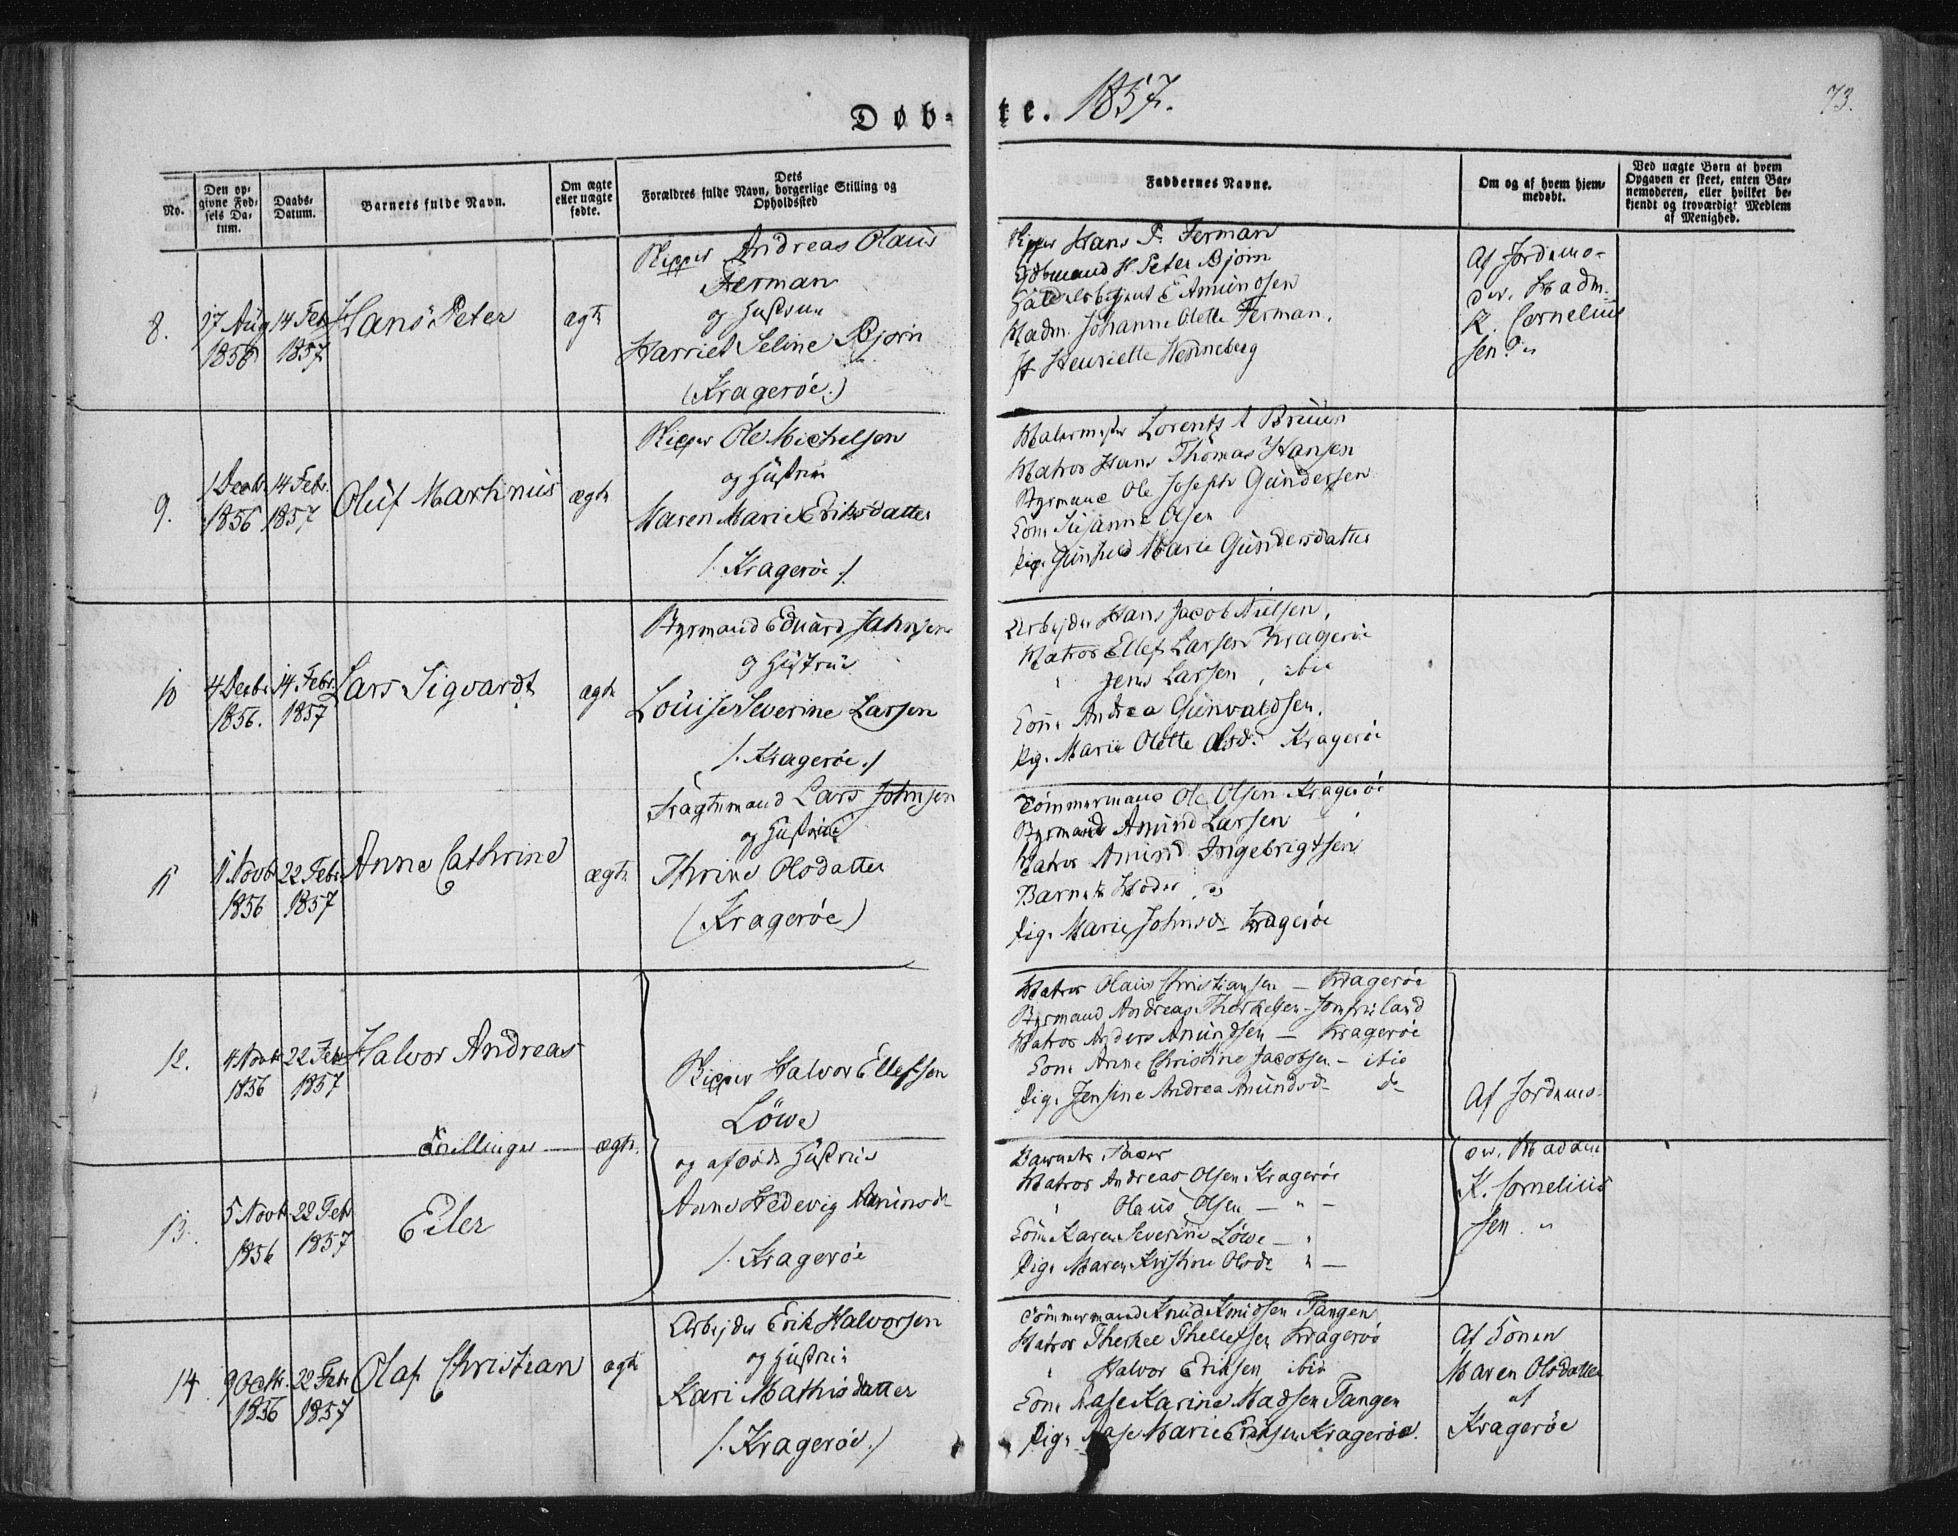 Døbte. 1857.
73.
No.
Den opgivne Fødsels Datum.
Daabs-Datum.
Barnets fulde Navn.
Om ægte eller uægte fødte.
Dets Forældres fulde Navn, borgerlige Stilling og Opholdssted
Faddernes Navne.
Om og af hvem hjemmedøbt.
Ved uægte Børn af hvem Opgaven er skeet, enten Barnemoderen, eller hvilket bekjendt og troværdigt Medlem af Menighed.
8.
27 Aug
1856
14 Feb
1857
Hans Peter
ægte
Skipper Andreas Olaus
Ferman
og Hustrue
Harriet Seline Bjørn
(Kragerøe.)
Skipper Hans P. Ferman
H. Peter Bjørn
E Amundsen
Madm. Johanne Olette Ferman.
Henriette Henneberg
Af Jordemo-
der, Madm.
K. Cornelius
sen.
9.
1 Decbr
1856
14 Febr.
1857
Oluf Martinus
ægte
Skipper Ole Michelsen
og Hustrue
Maren Marie Eriksdatter
/: Kragerøe :/
Malermester Lorents A Bruun
Matros Hans Thomas Hansen
Styrmand Ole Joseph Gundersen
Kone Susanne Olsen
Pige Gunhild Marie Gundersdatter
10
4 Decbr
1856.
14 Febr.
1857
Lars Sigvardt
ægte
Styrmand Eduard Jahnsen
og Hustrue
Louise Severine Larsen
/: Kragerøe :/
Arbejder Hans Jacob Nielsen,
Matros Ellef Larsen Kragerøe
" Jens Larsen, ibid
Kone Andrea Gunvaldsen.
Pige Marie Olette Olsd. Kragerøe
11
11 Novbr
1856
22 Febr.
1857
Anne Cathrine
ægte
Fragtemand Lars Johnsen
og Hustrue
Thrine Olsdatter
(Kragerøe)
Tömmermand Ole Olsen Kragerøe
Styrmand Amund Larsen
Matros Amund Ingebrigtsen
Barnets Moder
Pige Marie Johnsd. Kragerøe
12.
4 Novbr
1856
22 Febr
1857
Halvor Andreas
Tvillinger — ægte.
Skipper Halvor Ellefsen
Löwe
og afdöde Hustrue
Anne Hedevig Amundsd.
/: Kragerøe
Matros Olaus Christiansen — Kragerøe
Styrmand Andreas Thorkelsen - Jomfruland
Matros Anders Amundsen — Kragerøe
Kone Anne Christine Jacobsen — ibid
Pige Jensine Andrea Amundsd. do
Af Jordemo-
der, Madam
K. Cornelius
sen "
13.
5 Novbr
1856
22 Febr
1857
Eiler
Barnets Fader
Matros Andreas Olsen. Kragerøe
" Olaus Olsen — " —
Kone Karen Severine Löwe — "
Pige Maren Kirstine Olsd. " —
14.
9 Octbr.
1856
22 Febr
1857
Olaf Christian
ægte
Arbejder Erik Halvorsen
og Hustrue
Kari Mathisdatter
/: Kragerøe :/
Tömmermand Knud Knudsen Tangen
Matros Therkel Thellefsen Kragerøe
" Halvor Eriksen ibid
Kone Aase Karine Madsen Tangen
Pige Aase Marie Eriksen Kragerøe.
Af Konen
Maren Olsdatter
af
Kragerøe